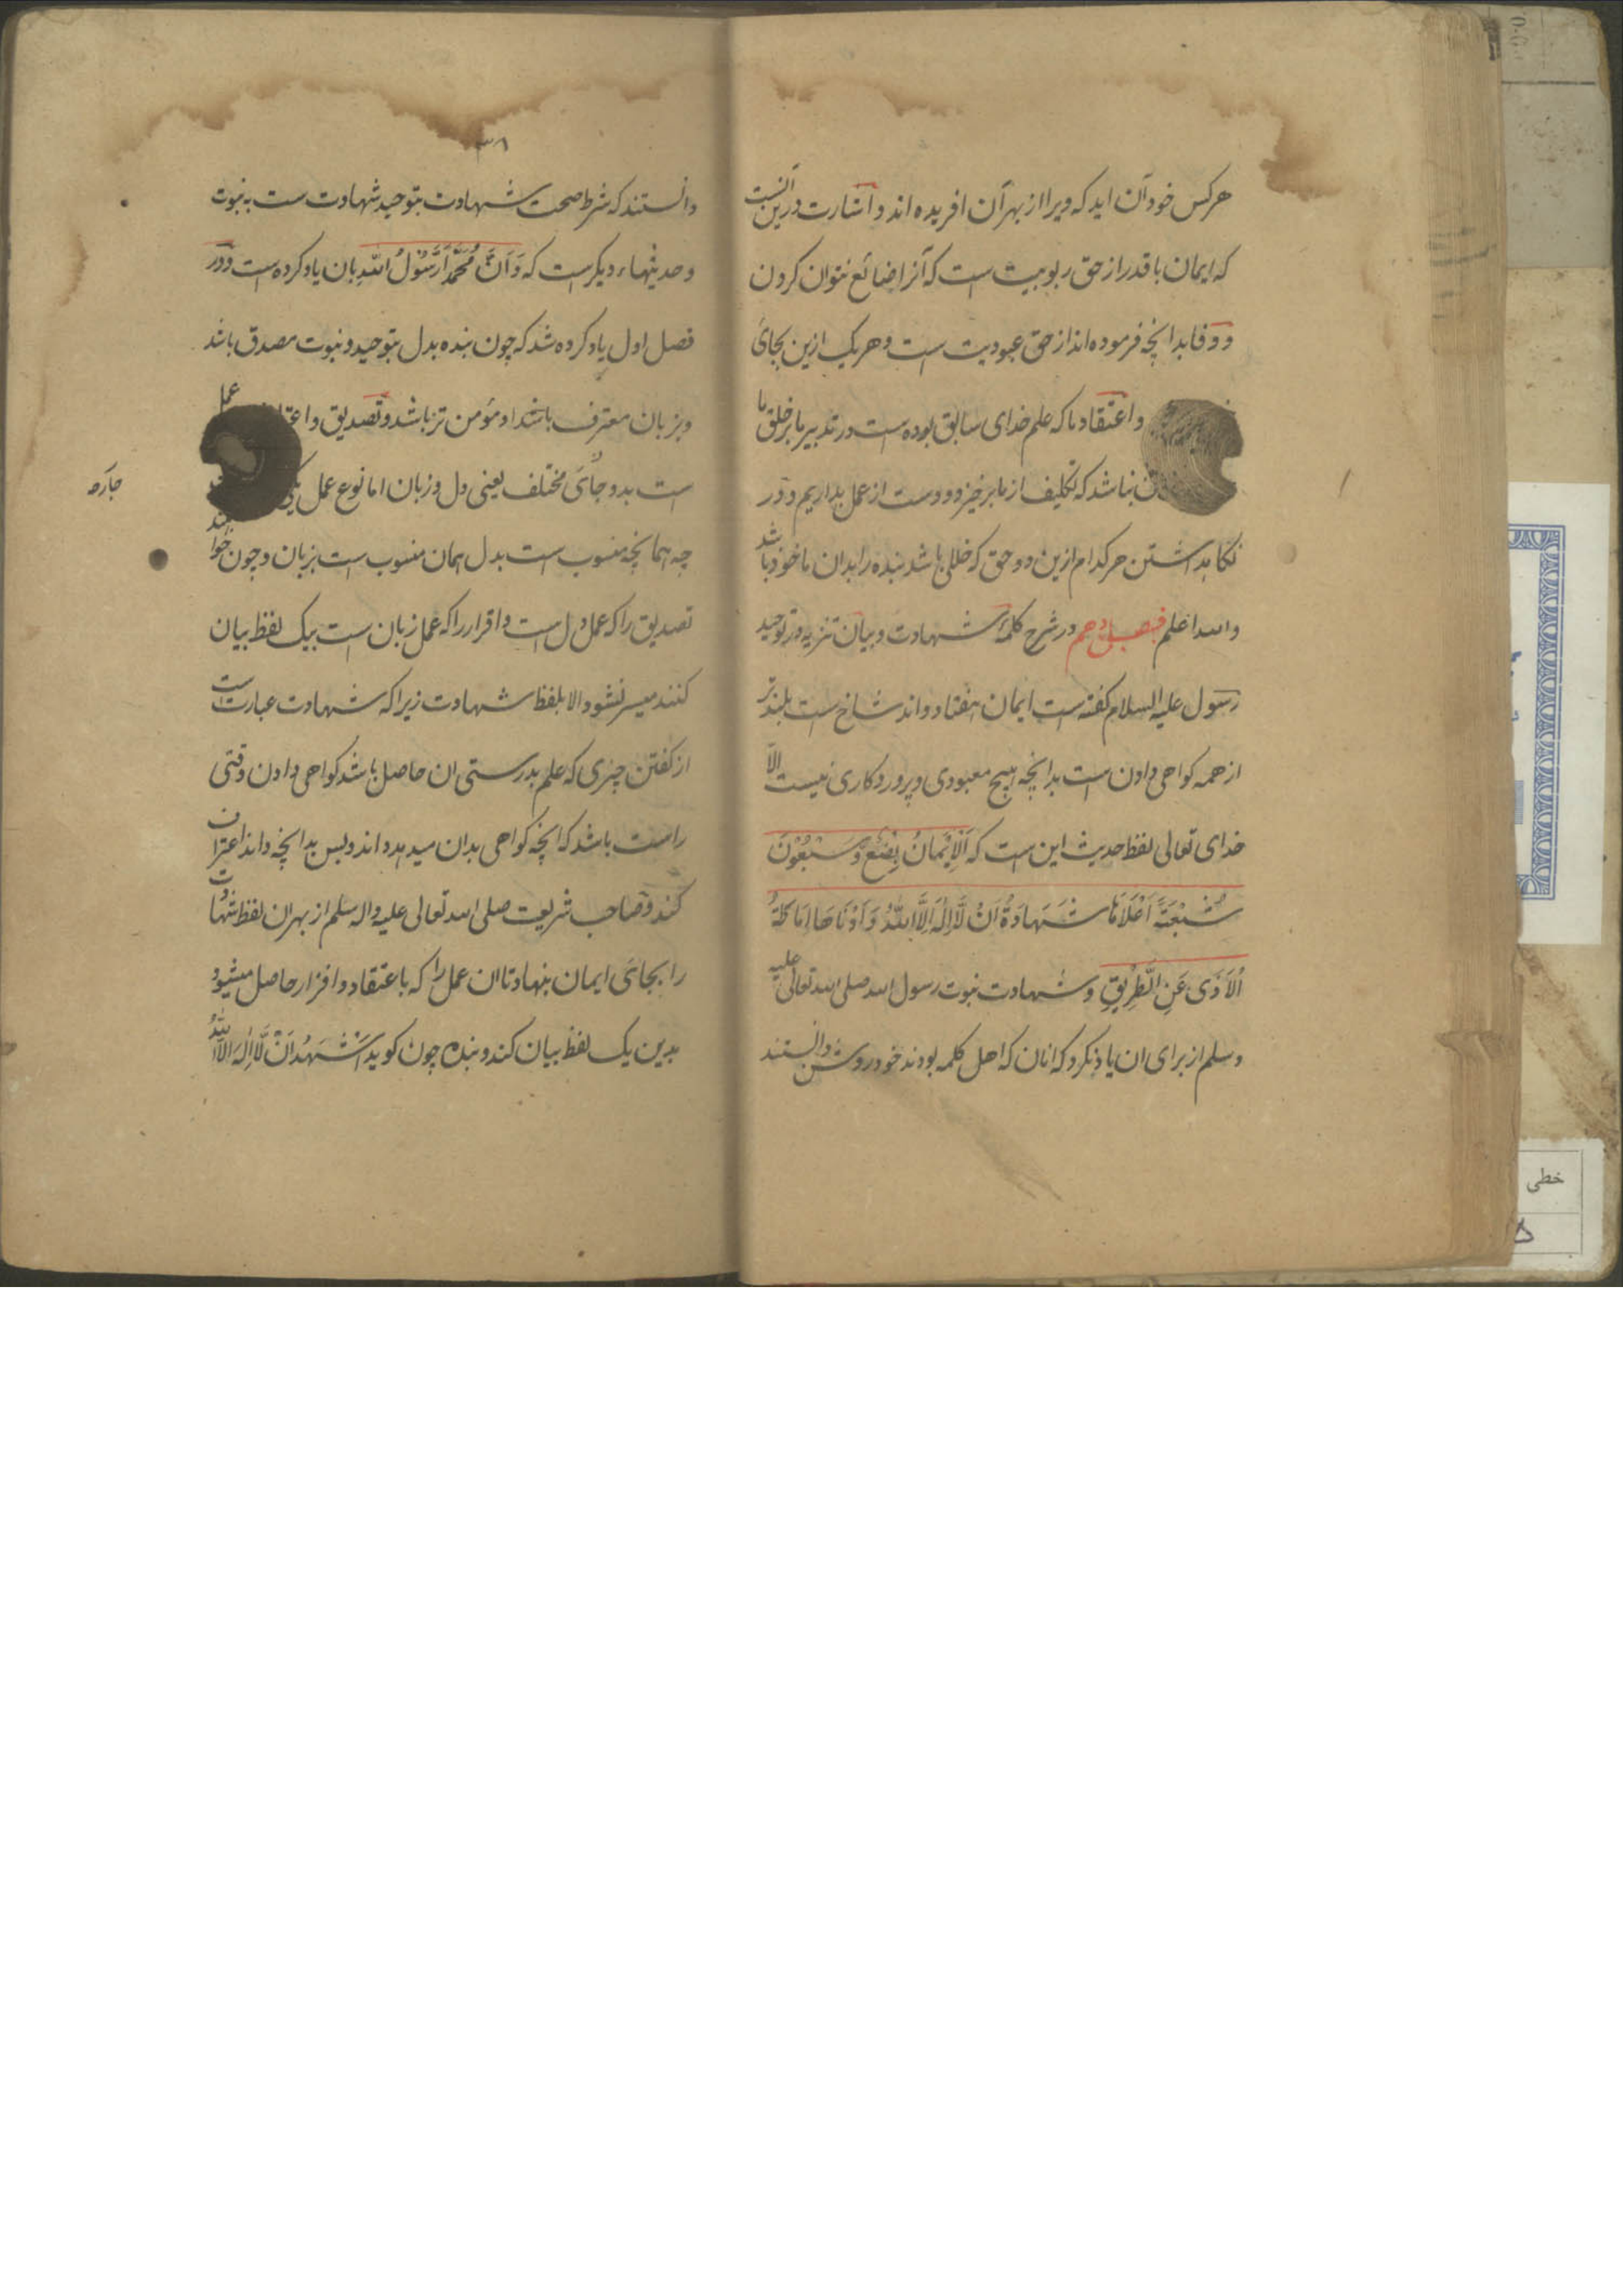 هر کس خود آن اید که ویرا از بهر آن افریده اند و اشارت درین آنست
که ایمان با قدر از حق ربوبیت است که آنرا ضائع نتوان کردن
و وفا بدانچه فرموده اند از حق عبودیت است و هر یک ازین بجای
و اعتقاد ما که علم خدای سابق بوده است در تدبیر ما بر خلق ما
نباشد که تکلیف از ما برخیزد و دست از عمل بداریم و در
نکاهداشتن هر کدام ازین دو حق که خللی باشد بنده را بدان ماخوذ باشد
والله اعلم فصل دهم در شرح کلمهٔ شهادت و بیان تنزیه در توحید
رسول علیه السلام کفته است ایمان هفتاد و اند شاخ است بلندتر
از همه کواهی دادن است بدانچه هیچ معبودی و پروردکاری نیست الا
خدای تعالی لفظ حدیث این است که اَلْاِیْمَانُ بِضْعٌ وَّسَبْعُوْنَ
شُعْبَةً اَعْلَاهَا شَهَادَةُ اَنْ لَّا اِلٰهَ اِلَّا اللّٰهُ وَ اَدْنَاهَا اِمَاطَةُ
الْاَذٰی عَنِ الطَّرِیْقِ و شهادت نبوت رسول الله صلی الله تعالی علیه
وسلم از برای ان یاد نکرد که انان که اهل کلمه بودند خود روشن دانستند
۳۸
دانستند که شرط صحت شهادت بتوحید شهادت ست به نبوت
و حدیثهاء دیکرست که وَ اَنَّ مُحَمَّدًا رَّسُوْلُ اللّٰهِ بان یاد کرده است و در
فصل اول یاد کرده شد که چون بنده بدل بتوحید و نبوت مصدق باشد
و بزبان معترف باشد او مؤمن تر باشد و تصدیق و عمل
است بدو جائ مختلف یعنی دل و زبان اما نوع عمل
جارحه
چه همانچه منسوب است بدل همان منسوب است بزبان و چون خوا
تصدیق را که عمل دل است و اقرار را که عمل زبان است بیک لفظ بیان
کنند میسر نشود الا بلفظ شهادت زیرا که شهادت عبارت است
از کفتن چیزی که علم بدرستی ان حاصل باشد کواهی دادن وقتی
راست باشد که انچه کواهی بدان میدهد داند و پس بدانچه داند اعتراف
کند و صاحب شریعت صلی الله تعالی علیه واله سلم از بهر ان لفظ شهادت
را بجائ ایمان بنهاد تا ان عمل را که باعتقاد و اقرار حاصل میشود
بدین یک لفظ بیان کند و بنده چون کوید اَشْهَدُ اَنْ لَّا اِلٰهَ اِلَّا اللّٰهُ
خطی